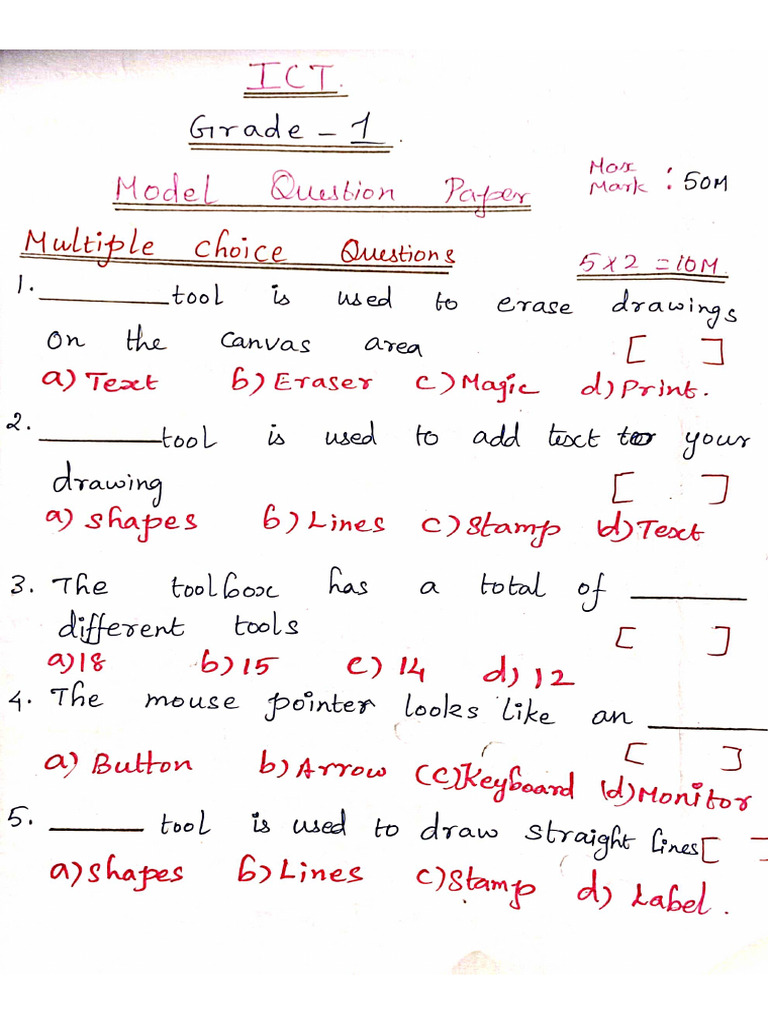 ICT.
Grade - 1.
Model Question Paper
Max Mark : 50M
Multiple choice Questions 5 x 2 = 10M
1. ________ tool is used to erase drawings
on the canvas area [ ]
a) Text b) Eraser c) Magic d) Print.
2. ________ tool is used to add text to your
drawing [ ]
a) shapes b) Lines c) Stamp d) Text
3. The toolbox has a total of ________
different tools [ ]
a) 18 b) 15 c) 14 d) 12
4. The mouse pointer looks like an ________
[ ]
a) Button b) Arrow (c) Keyboard (d) Monitor
5. ________ tool is used to draw straight lines [ ]
a) shapes b) Lines c) Stamp d) Label.